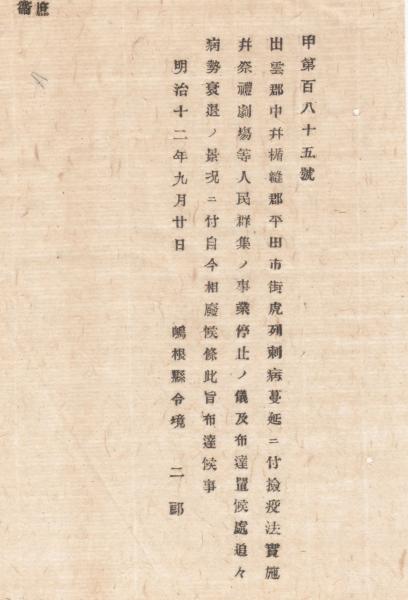 庶
甲第百八十五號
出雲郡中幷楯縫郡平田市街虎列刺病蔓延ニ付撿疫法實施
幷祭禮劇場等人民群集ノ事業停止ノ儀及布達置候處追々
病勢衰退ノ景况ニ付自今相廢候條此旨布達候事
明治十二年九月廿日　嶋根縣令境　二郎